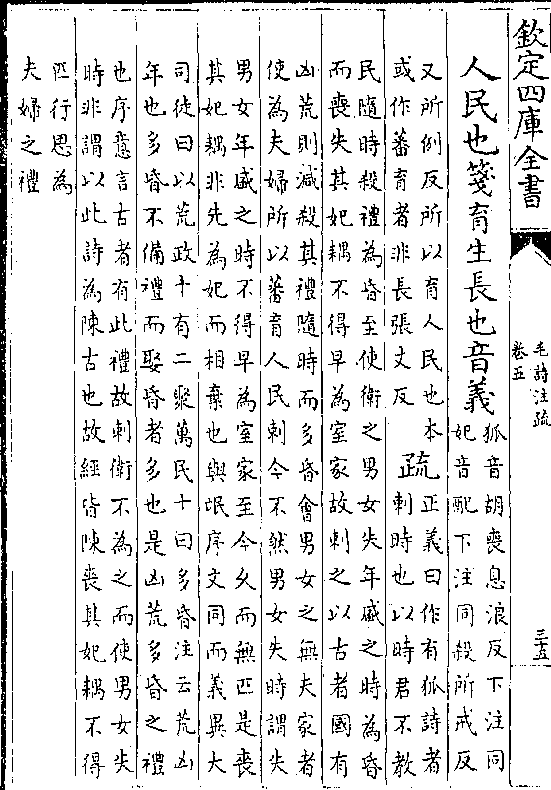 欽定四庫全書
毛詩注疏
卷五
三十五
人民也箋育生長也音義
狐音胡喪息浪反下注同
妃音配下注同殺所戒反
又所例反所以育人民也本
或作蕃育者非長張丈反
疏
正義曰作有狐詩者
刺時也以時君不教
民隨時殺禮為昏至使衛之男女失年盛之時為昏
而喪失其妃耦不得早為室家故刺之以古者國有
凶荒則減殺其禮隨時而多昏會男女之無夫家者
使為夫婦所以蕃育人民刺今不然男女失時謂失
男女年盛之時不得早為室家至今久而無匹是喪
其妃耦非先為妃而相棄也與氓序文同而義異大
司徒曰以荒政十有二聚萬民十曰多昏注云荒凶
年也多昏不備禮而娶昏者多也是凶荒多昏之禮
也序意言古者有此禮故刺衛不為之而使男女失
時非謂以此詩為陳古也故經皆陳喪其妃耦不得
匹行思為
夫婦之禮